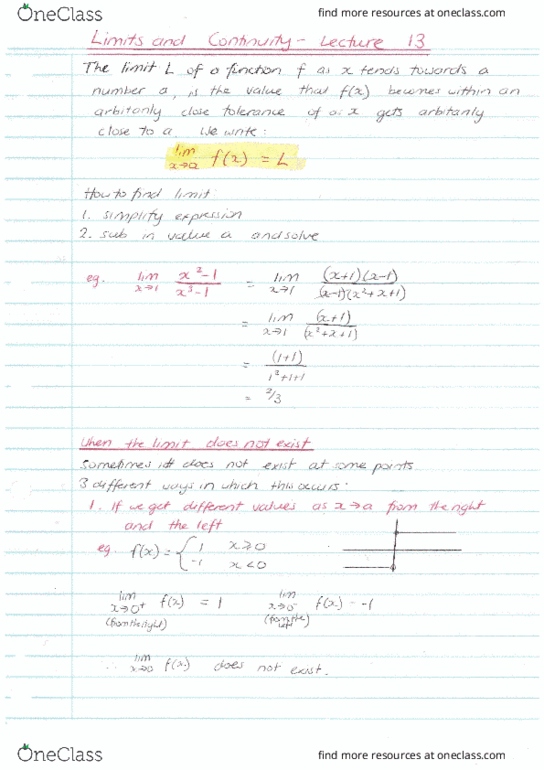 OneClass
find more resources at oneclass.com
Limits and Continuity - Lecture 13
The limit L of a function f as x tends towards a
number a, is the value that f(x) becomes within an
arbitarily close tolerance of as x gets arbitarily
close to a. We write:
lim x→a f(x) = L
How to find limit:
1. simplify expression
2. sub in value a and solve
eg. lim x→1 x²-1 / x³-1 = lim x→1 (x+1)(x-1) / (x-1)(x²+x+1)
= lim x→1 (x+1) / (x²+x+1)
= (1+1) / 1²+1+1
= 2/3
When the limit does not exist
Sometimes it does not exist at some points.
3 different ways in which this occurs:
1. If we get different values as x→a from the right
and the left
eg. f(x) = { 1 x≥0
-1 x<0
lim x→0⁺ f(x) = 1 lim x→0⁻ f(x) = -1
(from the right) (from the left)
∴ lim x→0 f(x) does not exist.
OneClass
find more resources at oneclass.com